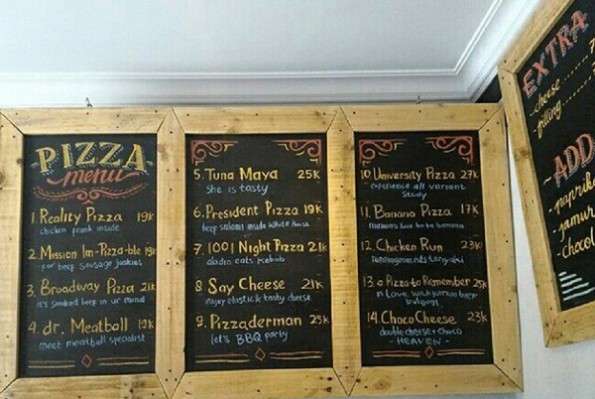 PIZZA
menu
1. Reality Pizza 19k
chicken prank inside
2. Mission Im-Pizza-ble 19k
for beef sausage junkies
3. Broadway Pizza 21k
it's smoked beef in ur mind
4. dr. Meatball 19k
meet meatball specialist
5. Tuna Maya 25k
She is tasty
6. President Pizza 19k
beef salami inside white house
7. 1001 Night Pizza 21k
aladin eats kebab
8 Say Cheese 21k
enjoy elastic & tasty cheese
9. Pizzaderman 25k
let's BBQ party
10. University Pizza 27k
experience all variant
study
11. Banana Pizza 17k
12. Chicken Run 23k
13. a Pizza to Remember 25k
in Love with korean beef
bulgogi
14. Choco Cheese 23k
double cheese + choco
- HEAVEN -
EXTRA
-cheese
-filling
ADD
-paprika
-jamur
-chocol